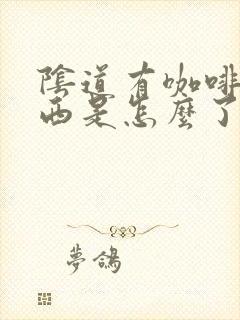 陰道有咖啡
西是怎麼了
夢鴿